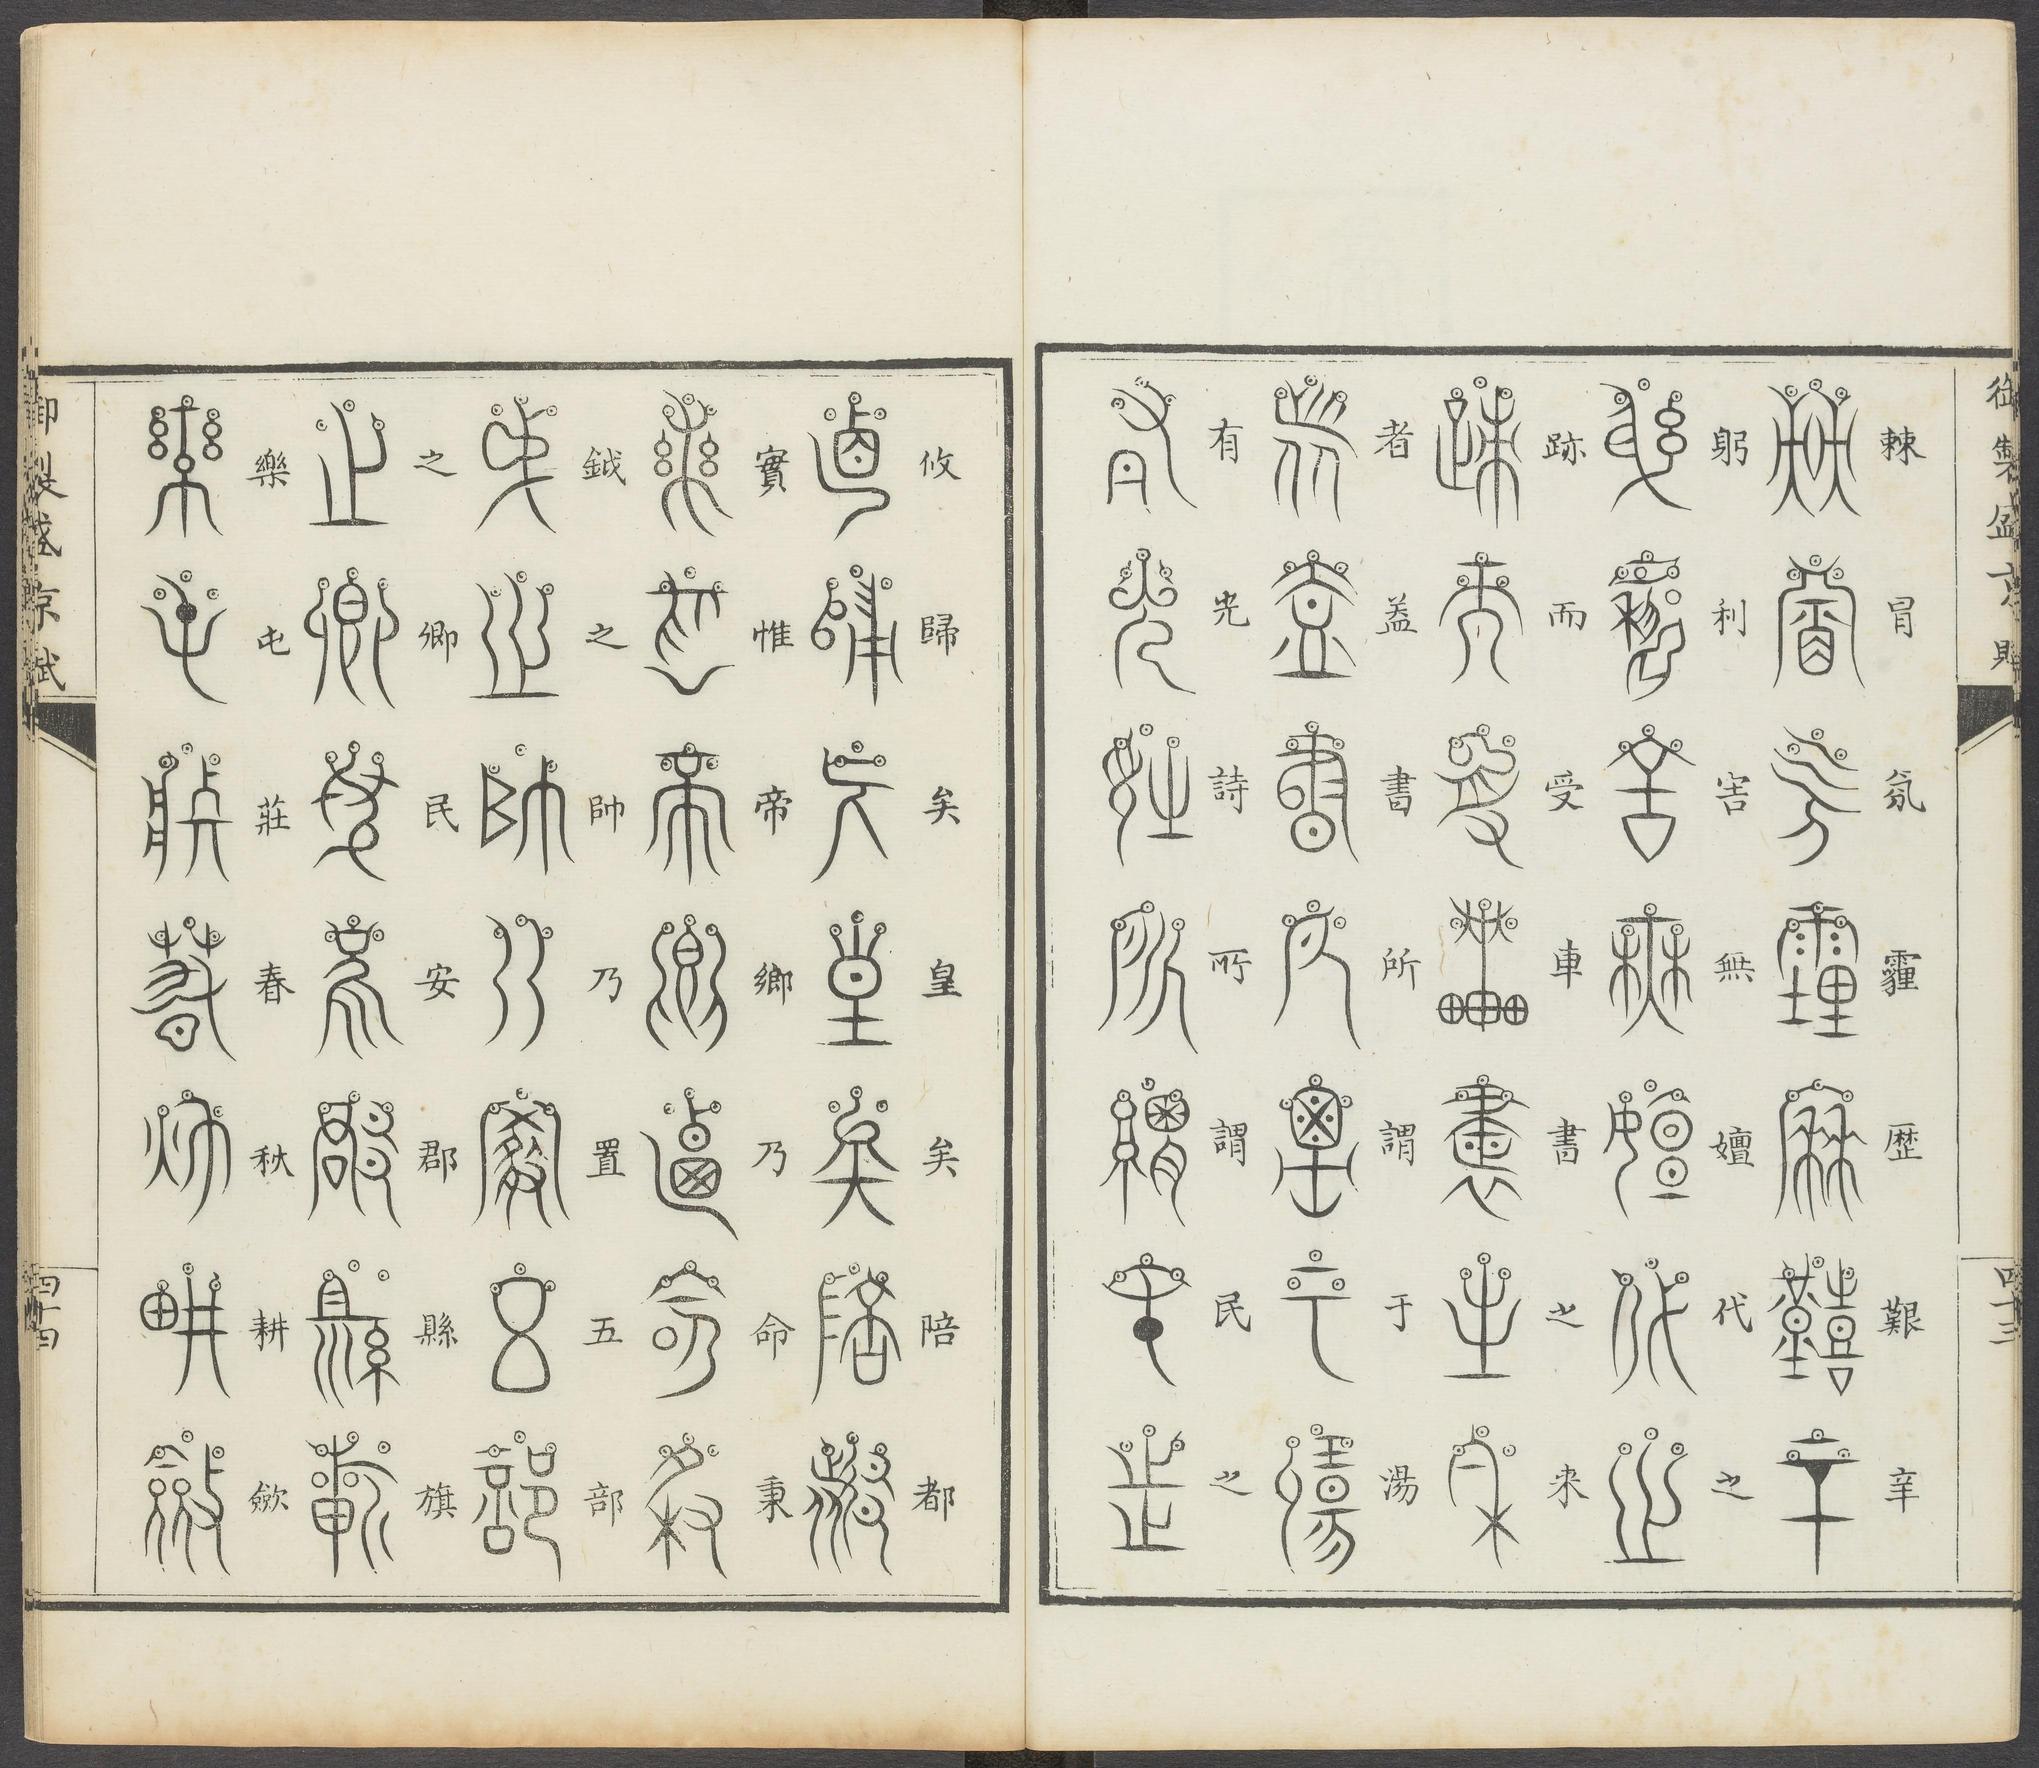 御製盛京賦
棘冒氛霾歷艱辛
躬利害無嬗代之
跡而受車書之來
者蓋書所謂于湯
有光詩所謂民之
四十三
攸歸矣皇矣陪都
實惟帝鄉乃命秉
鉞之帥乃置五部
之卿民安郡縣旗
樂屯莊春秋耕斂
御製盛京賦
四十四